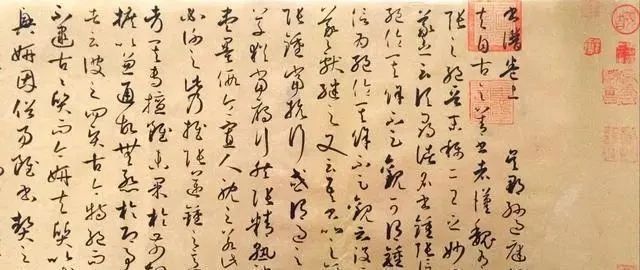 書譜卷上 吳郡孫過庭
夫自古之善書者漢魏有
張之絕晉末稱二王之妙
羲之云頃尋諸名書鍾張信
絕倫其餘不足觀可謂鍾
信為絕倫其餘不足觀云沒
羲獻繼之又云吾書比之
張鍾當抗行或謂過之
草猶當雁行然張精熟
盡墨假令寡人耽之若此
必謝之此乃推張邁鍾之意
考其專擅雖未果於前規
摭以兼通故無慚於即事
者云彼之四賢古今特絕而
不逮古古質而今妍夫質以
興妍因俗易雖書契之